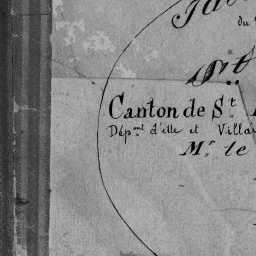 du
St
Canton de St.
Dépmt d'elle et Villa
Mr. le